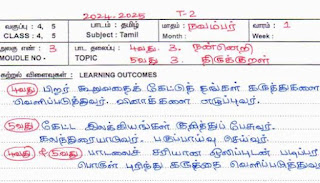 2024-2025 T-2
வகுப்பு : 4, 5 பாடம் : தமிழ் மாதம் : நவம்பர் வாரம் : 1
CLASS : 4, 5 Subject : Tamil Month : Week :
அலகு எண் : 3 பாட தலைப்பு : 4வது 3. நன்னெறி
MOUDLE NO - TOPIC 5வது 3. திருக்குறள்
கற்றல் விளைவுகள் : LEARNING OUTCOMES
4வது பிறர் கூறுவதைக் கேட்டுத் தங்கள் கருத்துகளை
வெளிப்படுத்துவர். வினாக்களை எழுப்புவர்.
5வது கேட்ட இலக்கியங்கள் குறித்துப் பேசுவர்.
கலந்துரையாடுவர். பகுப்பாய்வு செய்வர்.
4வது & 5வது பாடலைச் சரியான ஒலிப்புடன்
பொருள் புரிந்து கருத்தை வெளிப்படுத்துவர்